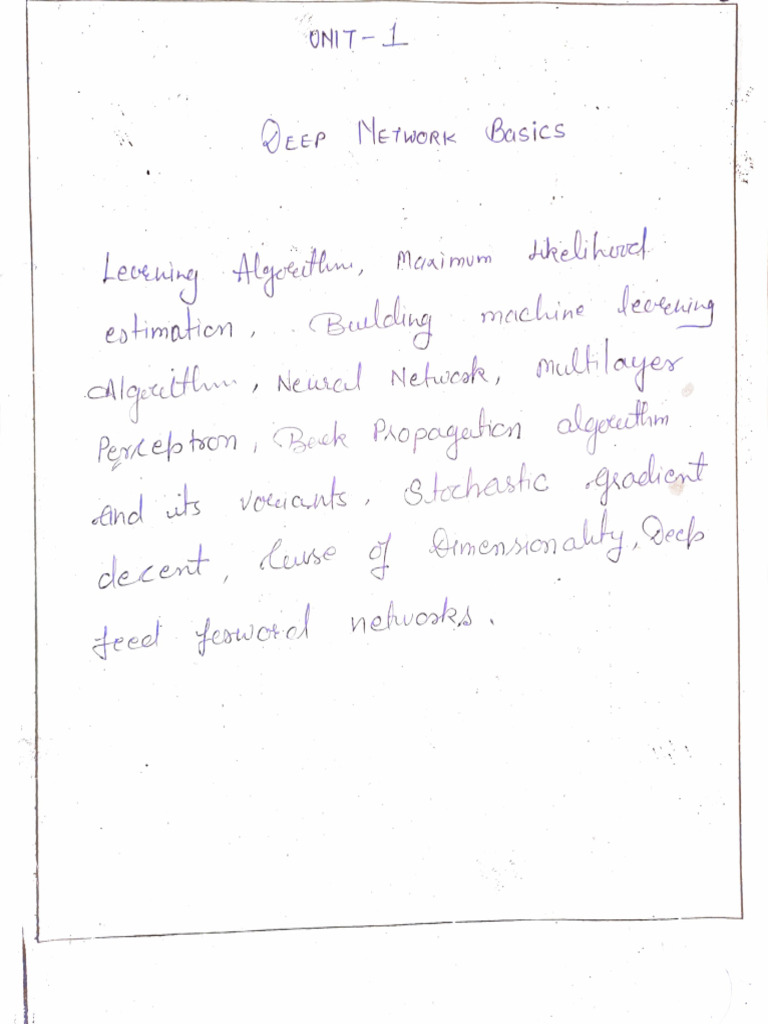 UNIT-1
DEEP NETWORK BASICS
Learning Algorithm, Maximum likelihood
estimation, Building machine learning
Algorithm, Neural Network, multilayer
Perceptron, Back Propagation algorithm
and its variants, Stochastic gradient
decent, Curse of Dimensionality, Deep
feed forward networks.